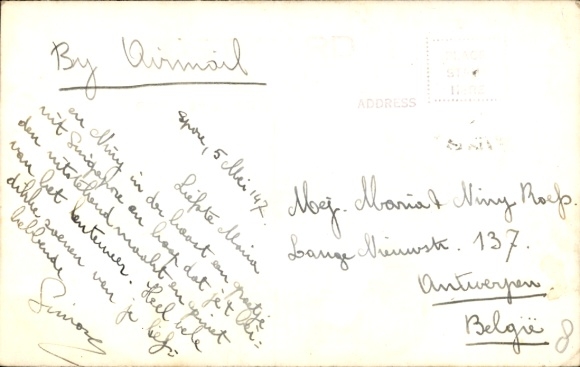 By Airmail
ADDRESS
Spore, 5 Mei '47.
Liefste Maria
en Niny in der haast een groetje
uit Singapore en hoop dat jet
den uitstekend maakt en geniet
van het Heel vele
dikke zoenen van je lief-
hebbende
Simon
Mej. Maria & Niny Roefs.
Lange Nieuwstr. 137.
Antwerpen.
België
8